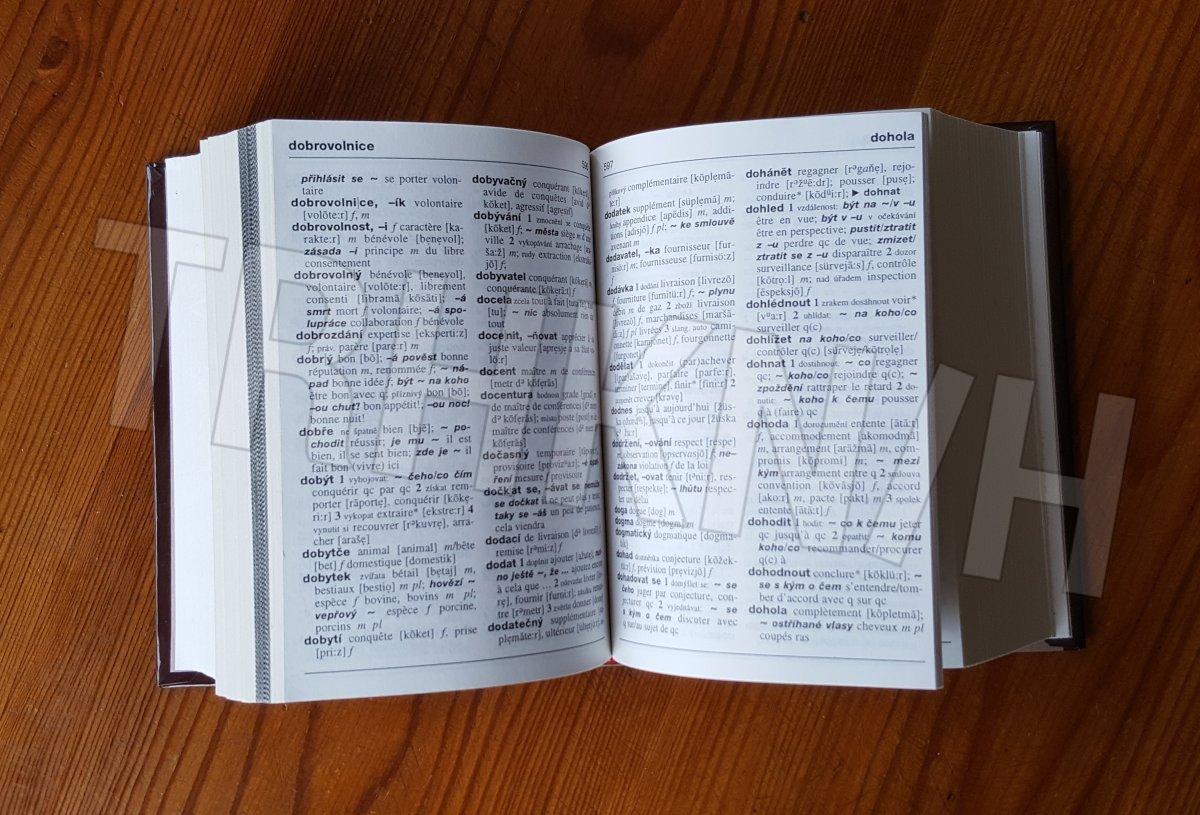 dobrovolnice
596
přihlásit se ~ se porter volon-
taire
dobrovolni|ce, –ík volontaire
[volõte:r] f, m
dobrovolnost, –i f caractère [ka-
rakte:r] m bénévole [benevol];
zásada –i principe m du libre
consentement
dobrovolný bénévole [benevol],
volontaire [volõte:r], librement
consenti [libramã kõsãti]; –á
smrt mort f volontaire; –á spo-
lupráce collaboration f bénévole
dobrozdání expertise [eksperti:z]
f; práv. parère [pare:r] m
dobr|ý bon [bõ]; –á pověst bonne
réputation m, renommée f; ~ ná-
pad bonne idée f; být ~ na koho
être bon avec q; příznivý bon [bõ];
–ou chuť! bon appétit!; –ou noc!
bonne nuit!
dobře ne špatně bien [bjẽ]; ~ po-
chodit réussir; je mu ~ il est
bien, il se sent bien; zde je ~ il
fait bon (vivre) ici
dobýt 1 vybojovat: ~ čeho/co čím
conquérir qc par qc 2 získat rem-
porter [rãporte], conquérir [kõke-
ri:r] 3 vykopat extraire* [ekstre:r] 4
vynutit si recouvrer [rᵊkuvre], arra-
cher [araše]
dobytče animal [animal] m/bête
[bet] f domestique [domestik]
dobytek zvířata bétail [betaj] m,
bestiaux [bestjo] m pl; hovězí ~
espèce f bovine, bovins m pl;
vepřový ~ espèce f porcine,
porcins m pl
dobytí conquête [kõket] f, prise
[pri:z] f
dobyvačný conquérant
avide de conquêtes
[kõket], agressif [agresif]
dobývání 1 zmocnění se conquête
[kõket] f; ~ města siège m d'une
ville 2 vykopávání arrachage [ara-
ša:ž] m; rudy extraction [ekstrak-
sjõ] f;
dobyvatel conquérant [kõkerã] m,
conquérante [kõkerã:t] f
docela zcela tout à fait [tuta fe], tout
[tu]; ~ nic absolument rien du
tout
doce|nit, –ňovat apprécier à sa
juste valeur [apresje a sa žüst va-
lö:r]
docent maître m de conférences
[metr dᵊ kõferãs]
docentura hodnost grade [grad] m
de maître de conférences
dᵊ kõferãs]; místo poste [post] m de
maître de conférences
kõferãs]
dočasný temporaire
provisoire [provizᵘa:r]; –é opat-
ření mesure f provisoire
dočk|at se, –ávat se nemůže
se dočkat il ne peut plus
taky se –áš un peu de patience,
cela viendra
dodací de livraison [dᵊ livrezõ]
remise [rᵊmi:z] f
dodat 1 doplnit ajouter [ažute],
no ještě ~, že ... ajoutez encore
à cela que ... 2 odevzdat livrer
fournir [furni:r];
tre [rᵊmetr] 3 donner
dodatečný supplémentaire
plemãte:r], ultérieur
dohola
597
complémentaire [kõplemã-
te:r]
dodatek supplément [süplemã] m;
knihy appendice [apẽdis] m, addi-
tions [adisjõ] f pl; ~ ke smlouvě
avenant m
dodavatel, –ka fournisseur [fur-
nisö:r] m; fournisseuse [furnisö:z]
f
dodávka 1 dodání livraison [livrezõ]
f, fourniture [furnitü:r] f; ~ plynu
débit m de gaz 2 zboží livraison
[livrezõ] f, marchandises [maršã-
di:z] f pl livrées 3 slang. auto cami-
onnette [kamjonet] f, fourgonnette
[furgonet] f
dodělat 1 dokončit (par)achever
[(par)ašave], parfaire [parfe:r],
terminer [termine], finir* [fini:r] 2
zapadnout crever [krave]
dodnes jusqu'à aujourd'hui [žüs-
jusqu'à ce jour [žüska
dodržení, –ování respect [respe]
observation [opservasjõ] f; ne-
zákona violation f de la loi
dodržet, –ovat tenir [tᵊni:r], res-
pecter [respekte]; ~ lhůtu respec-
ter un délai
doga dogue [dog] m
dogma dogme [dogm] m
dogmatický dogmatique [dogma-
tik]
dohad domněnka conjecture [kõžek-
tü:r] f, prévision [previzjõ] f
dohadovat se 1 domýšlet se: ~ se
čeho juger par conjecture, con-
jecturer qc 2 vyjednávat: ~ se
s kým o čem discuter avec
q sur/au sujet de qc
dohánět regagner [rᵊgaňe], rejo-
indre [rᵊžᵘẽ:dr]; pousser [puse];
conduire* [kõdᵘi:r]; ► dohnat
dohled 1 vzdálenost: být na ~/v –u
être en vue; být v –u v očekávání
être en perspective; pustit/ztratit
z –u perdre qc de vue; zmizet/
ztratit se z –u disparaître 2 dozor
surveillance [sürvejã:s] f, contrôle
[kõtro:l] m; nad úřadem inspection
[ẽspeksjõ] f
dohlédnout 1 zrakem dosáhnout voir*
[vᵘa:r] 2 uhlídat: ~ na koho/co
surveiller q(c)
dohlížet na koho/co surveiller/
contrôler q(c) [sürveje/kõtrole]
dohnat 1 dostihnout: ~ co regagner
qc; ~ koho/co rejoindre q(c); ~
zpoždění rattraper le retard 2 do-
nutit: ~ koho k čemu pousser
q à (faire) qc
dohoda 1 dorozumění entente [ãtã:t]
f, accommodement [akomodmã]
m, arrangement [arãžmã] m, com-
promis [kõpromi] m; ~ mezi
kým arrangement entre q 2 smlouva
convention [kõvãsjõ] f, accord
[ako:r] m, pacte [pakt] m 3 spolek
entente [ãtã:t] f
dohodit 1 hodit: ~ co k čemu jeter
qc jusqu'à qc 2 opatřit: ~ komu
koho/co recommander/procurer
q(c) à
dohodnout conclure* [kõklü:r]; ~
se s kým o čem s'entendre/tom-
ber d'accord avec q sur qc
dohola complètement [kõpletmã];
~ ostříhané vlasy cheveux m pl
coupés ras
TRHKNIH